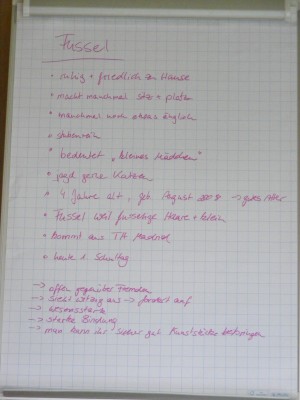 Fussel
• ruhig + friedlich zu Hause
• macht manchmal sitz + platz
• manchmal noch etwas ängstlich
• stubenrein
• bedeutet "kleines Mädchen"
• jagt gerne Katzen
• 4 Jahre alt, geb. August → gutes Alter
• Fussel weil fusselige Haare + klein
• kommt aus TH Madrid
• heute 1. Schultag
→ offen gegenüber Fremden
→ sieht witzig aus → fordert auf
→ wesensstark
→ starke Bindung
→ man kann ihr super gut Kunststücke beibringen